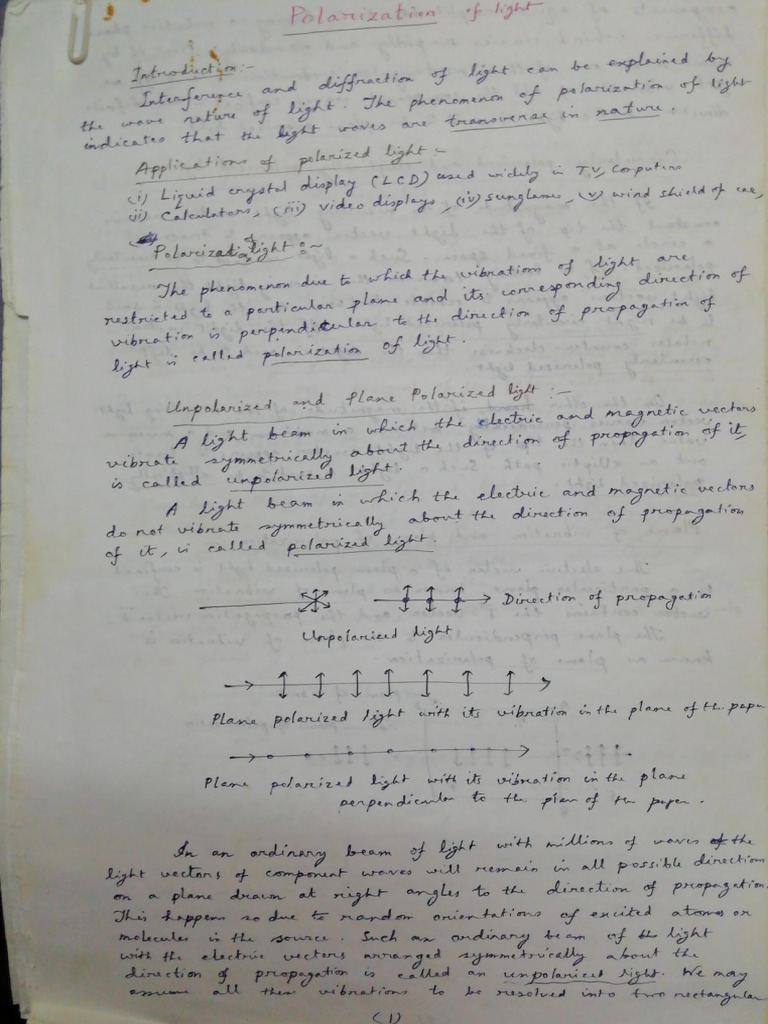 Polarization of light
Introduction:-
Interference and diffraction of light can be explained by
the wave nature of light. The phenomenon of polarization of light
indicates that the light waves are transverse in nature.
Applications of polarized light:-
(i) Liquid crystal display (LCD) used widely in TV, Computers
(ii) Calculators, (iii) video displays, (iv) sunglasses, (v) wind shield of car,
Polarization of light:-
The phenomenon due to which the vibrations of light are
restricted to a particular plane and its corresponding direction of
vibration is perpendicular to the direction of propagation of
light is called polarization of light.
Unpolarized and Plane Polarized light:-
A light beam in which the electric and magnetic vectors
vibrate symmetrically about the direction of propagation of it,
is called unpolarized light.
A light beam in which the electric and magnetic vectors
do not vibrate symmetrically about the direction of propagation
of it, is called polarized light.
Direction of propagation
Unpolarized light
Plane polarized light with its vibration in the plane of the paper
Plane polarized light with its vibration in the plane
perpendicular to the plan of the paper.
In an ordinary beam of light with millions of waves the
light vectors of component waves will remain in all possible direction
on a plane drawn at right angles to the direction of propagation.
This happens so due to random orientations of excited atoms or
molecules in the source. Such an ordinary beam of light
with the electric vectors arranged symmetrically about the
direction of propagation is called an unpolarized light. We may
assume all these vibrations to be resolved into two rectangular
(1)